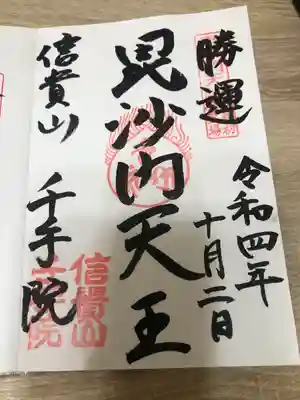 勝運
令和四年
十月二日
毘沙門天王
信貴山
千手院
信貴山
千手院